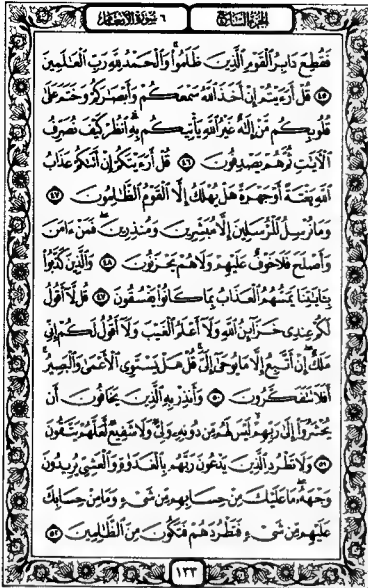 الجزء السابع
٦ سورة الأنعام
فَقُطِعَ دَابِرُ ٱلْقَوْمِ ٱلَّذِينَ ظَلَمُوا۟ وَٱلْحَمْدُ لِلَّهِ رَبِّ ٱلْعَٰلَمِينَ
٤٥ قُلْ أَرَءَيْتُمْ إِنْ أَخَذَ ٱللَّهُ سَمْعَكُمْ وَأَبْصَٰرَكُمْ وَخَتَمَ عَلَىٰ
قُلُوبِكُم مَّنْ إِلَٰهٌ غَيْرُ ٱللَّهِ يَأْتِيكُم بِهِ ٱنظُرْ كَيْفَ نُصَرِّفُ
ٱلْءَايَٰتِ ثُمَّ هُمْ يَصْدِفُونَ ٤٦ قُلْ أَرَءَيْتَكُمْ إِنْ أَتَىٰكُمْ عَذَابُ
ٱللَّهِ بَغْتَةً أَوْ جَهْرَةً هَلْ يُهْلَكُ إِلَّا ٱلْقَوْمُ ٱلظَّٰلِمُونَ ٤٧
وَمَا نُرْسِلُ ٱلْمُرْسَلِينَ إِلَّا مُبَشِّرِينَ وَمُنذِرِينَ فَمَنْ ءَامَنَ
وَأَصْلَحَ فَلَا خَوْفٌ عَلَيْهِمْ وَلَا هُمْ يَحْزَنُونَ ٤٨ وَٱلَّذِينَ كَذَّبُوا۟
بِـَٔايَٰتِنَا يَمَسُّهُمُ ٱلْعَذَابُ بِمَا كَانُوا۟ يَفْسُقُونَ ٤٩ قُل لَّآ أَقُولُ
لَكُمْ عِندِى خَزَآئِنُ ٱللَّهِ وَلَآ أَعْلَمُ ٱلْغَيْبَ وَلَآ أَقُولُ لَكُمْ إِنِّى
مَلَكٌ إِنْ أَتَّبِعُ إِلَّا مَا يُوحَىٰٓ إِلَىَّ قُلْ هَلْ يَسْتَوِى ٱلْأَعْمَىٰ وَٱلْبَصِيرُ
أَفَلَا تَتَفَكَّرُونَ ٥٠ وَأَنذِرْ بِهِ ٱلَّذِينَ يَخَافُونَ أَن
يُحْشَرُوٓا۟ إِلَىٰ رَبِّهِمْ لَيْسَ لَهُم مِّن دُونِهِۦ وَلِىٌّ وَلَا شَفِيعٌ لَّعَلَّهُمْ يَتَّقُونَ
٥١ وَلَا تَطْرُدِ ٱلَّذِينَ يَدْعُونَ رَبَّهُم بِٱلْغَدَوٰةِ وَٱلْعَشِىِّ يُرِيدُونَ
وَجْهَهُۥ مَا عَلَيْكَ مِنْ حِسَابِهِم مِّن شَىْءٍ وَمَا مِنْ حِسَابِكَ
عَلَيْهِم مِّن شَىْءٍ فَتَطْرُدَهُمْ فَتَكُونَ مِنَ ٱلظَّٰلِمِينَ ٥٢
١٣٣